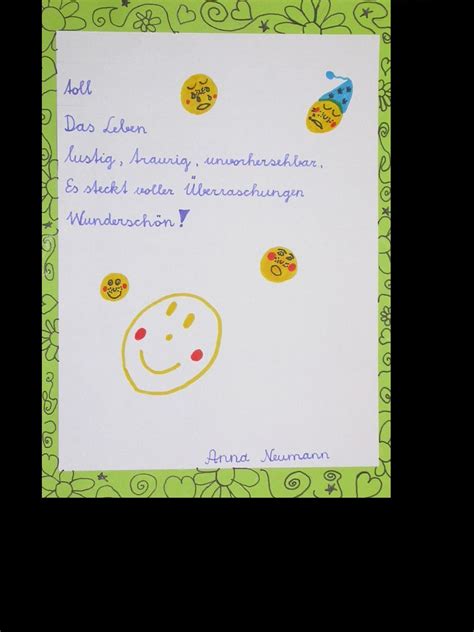 toll
Das Leben
lustig, traurig, unvorhersehbar.
Es steckt voller Überraschungen
Wunderschön!
Anna Neumann